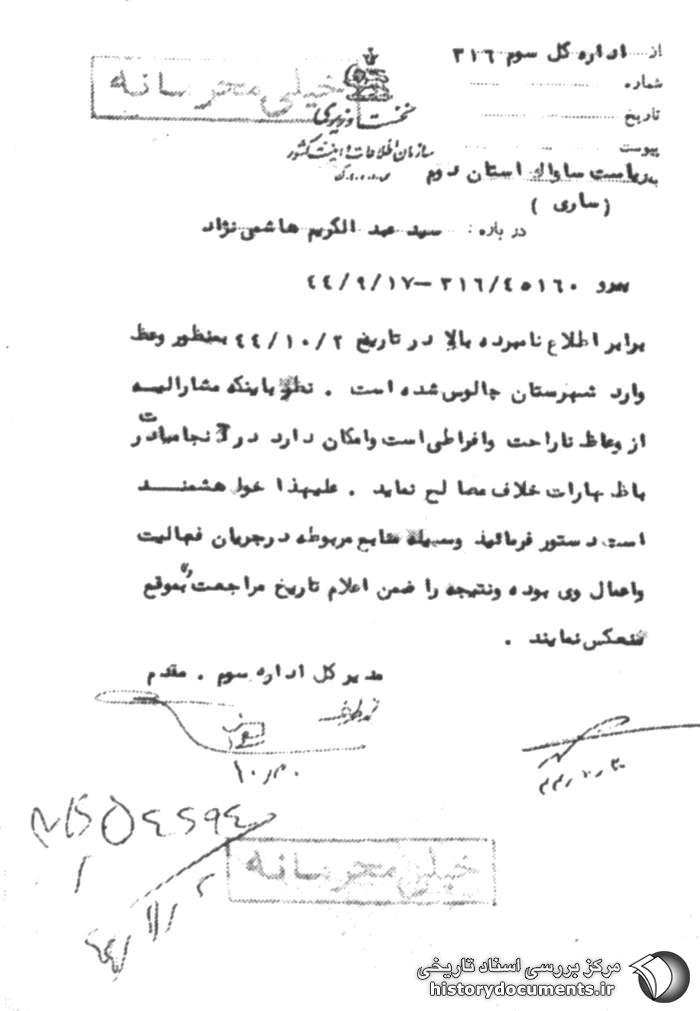 خیلی محرمانه
از اداره کل سوم ۳۱۶
شماره
تاریخ
پیوست
نخست وزیری
سازمان اطلاعات و امنیت کشور
بریاست ساواك استان دوم
(ساری)
درباره : سید عبد الکریم هاشمی نژاد
پیرو ۳۱۶/۴۵۱۶۰ -۴۴/۹/۱۷
برابر اطلاع نامبرده بالا در تاریخ ۴۴/۱۰/۲ بمنظور وعظ
وارد شهرستان چالوس شده است . نظر باینکه مشارالیه
از وعاظ ناراحت وافراطی است وامکان دارد در آنجا مبادرت
باظهارات خلاف مصالح نماید . علیهذا خواهشمند
است دستور فرمائید وسیله منابع مربوطه درجریان فعالیت
واعمال وی بوده ونتیجه را ضمن اعلام تاریخ مراجعت بموقع
منعکس نمایند .
مدیر کل اداره سوم . مقدم
خیلی محرمانه
مرکز بررسی اسناد تاریخی
historydocuments.ir